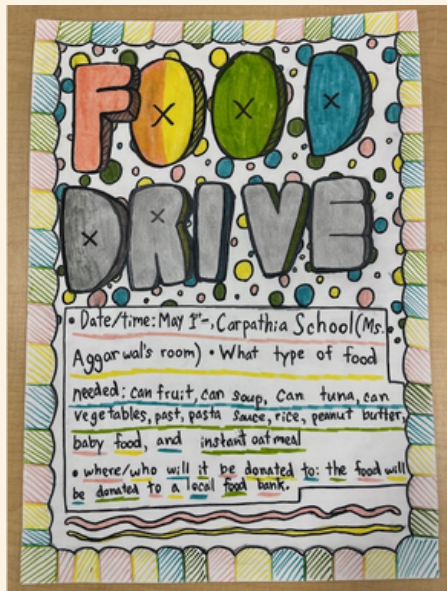 FOOD
DRIVE
• Date/time: May 1st-, Carpathia School (Ms.
Aggarwal's room) • What type of food
needed: can fruit, can soup, can tuna, can
vegetables, past, pasta sauce, rice, peanut butter,
baby food, and instant oatmeal
• where/who will it be donated to: the food will
be donated to a local food bank.